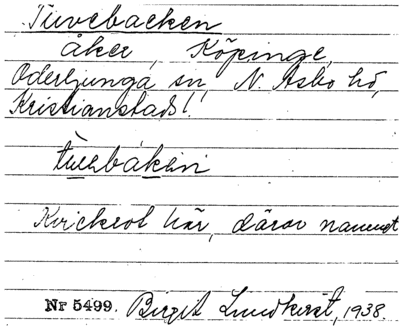 Tuvebacken
åker, Köpinge,
Oderljunga sn, N. Åsbo hd,
Kristianstads l.
Kvickrot här, därav namnet
Nr 5499. Birgit Lundkvist, 1938.